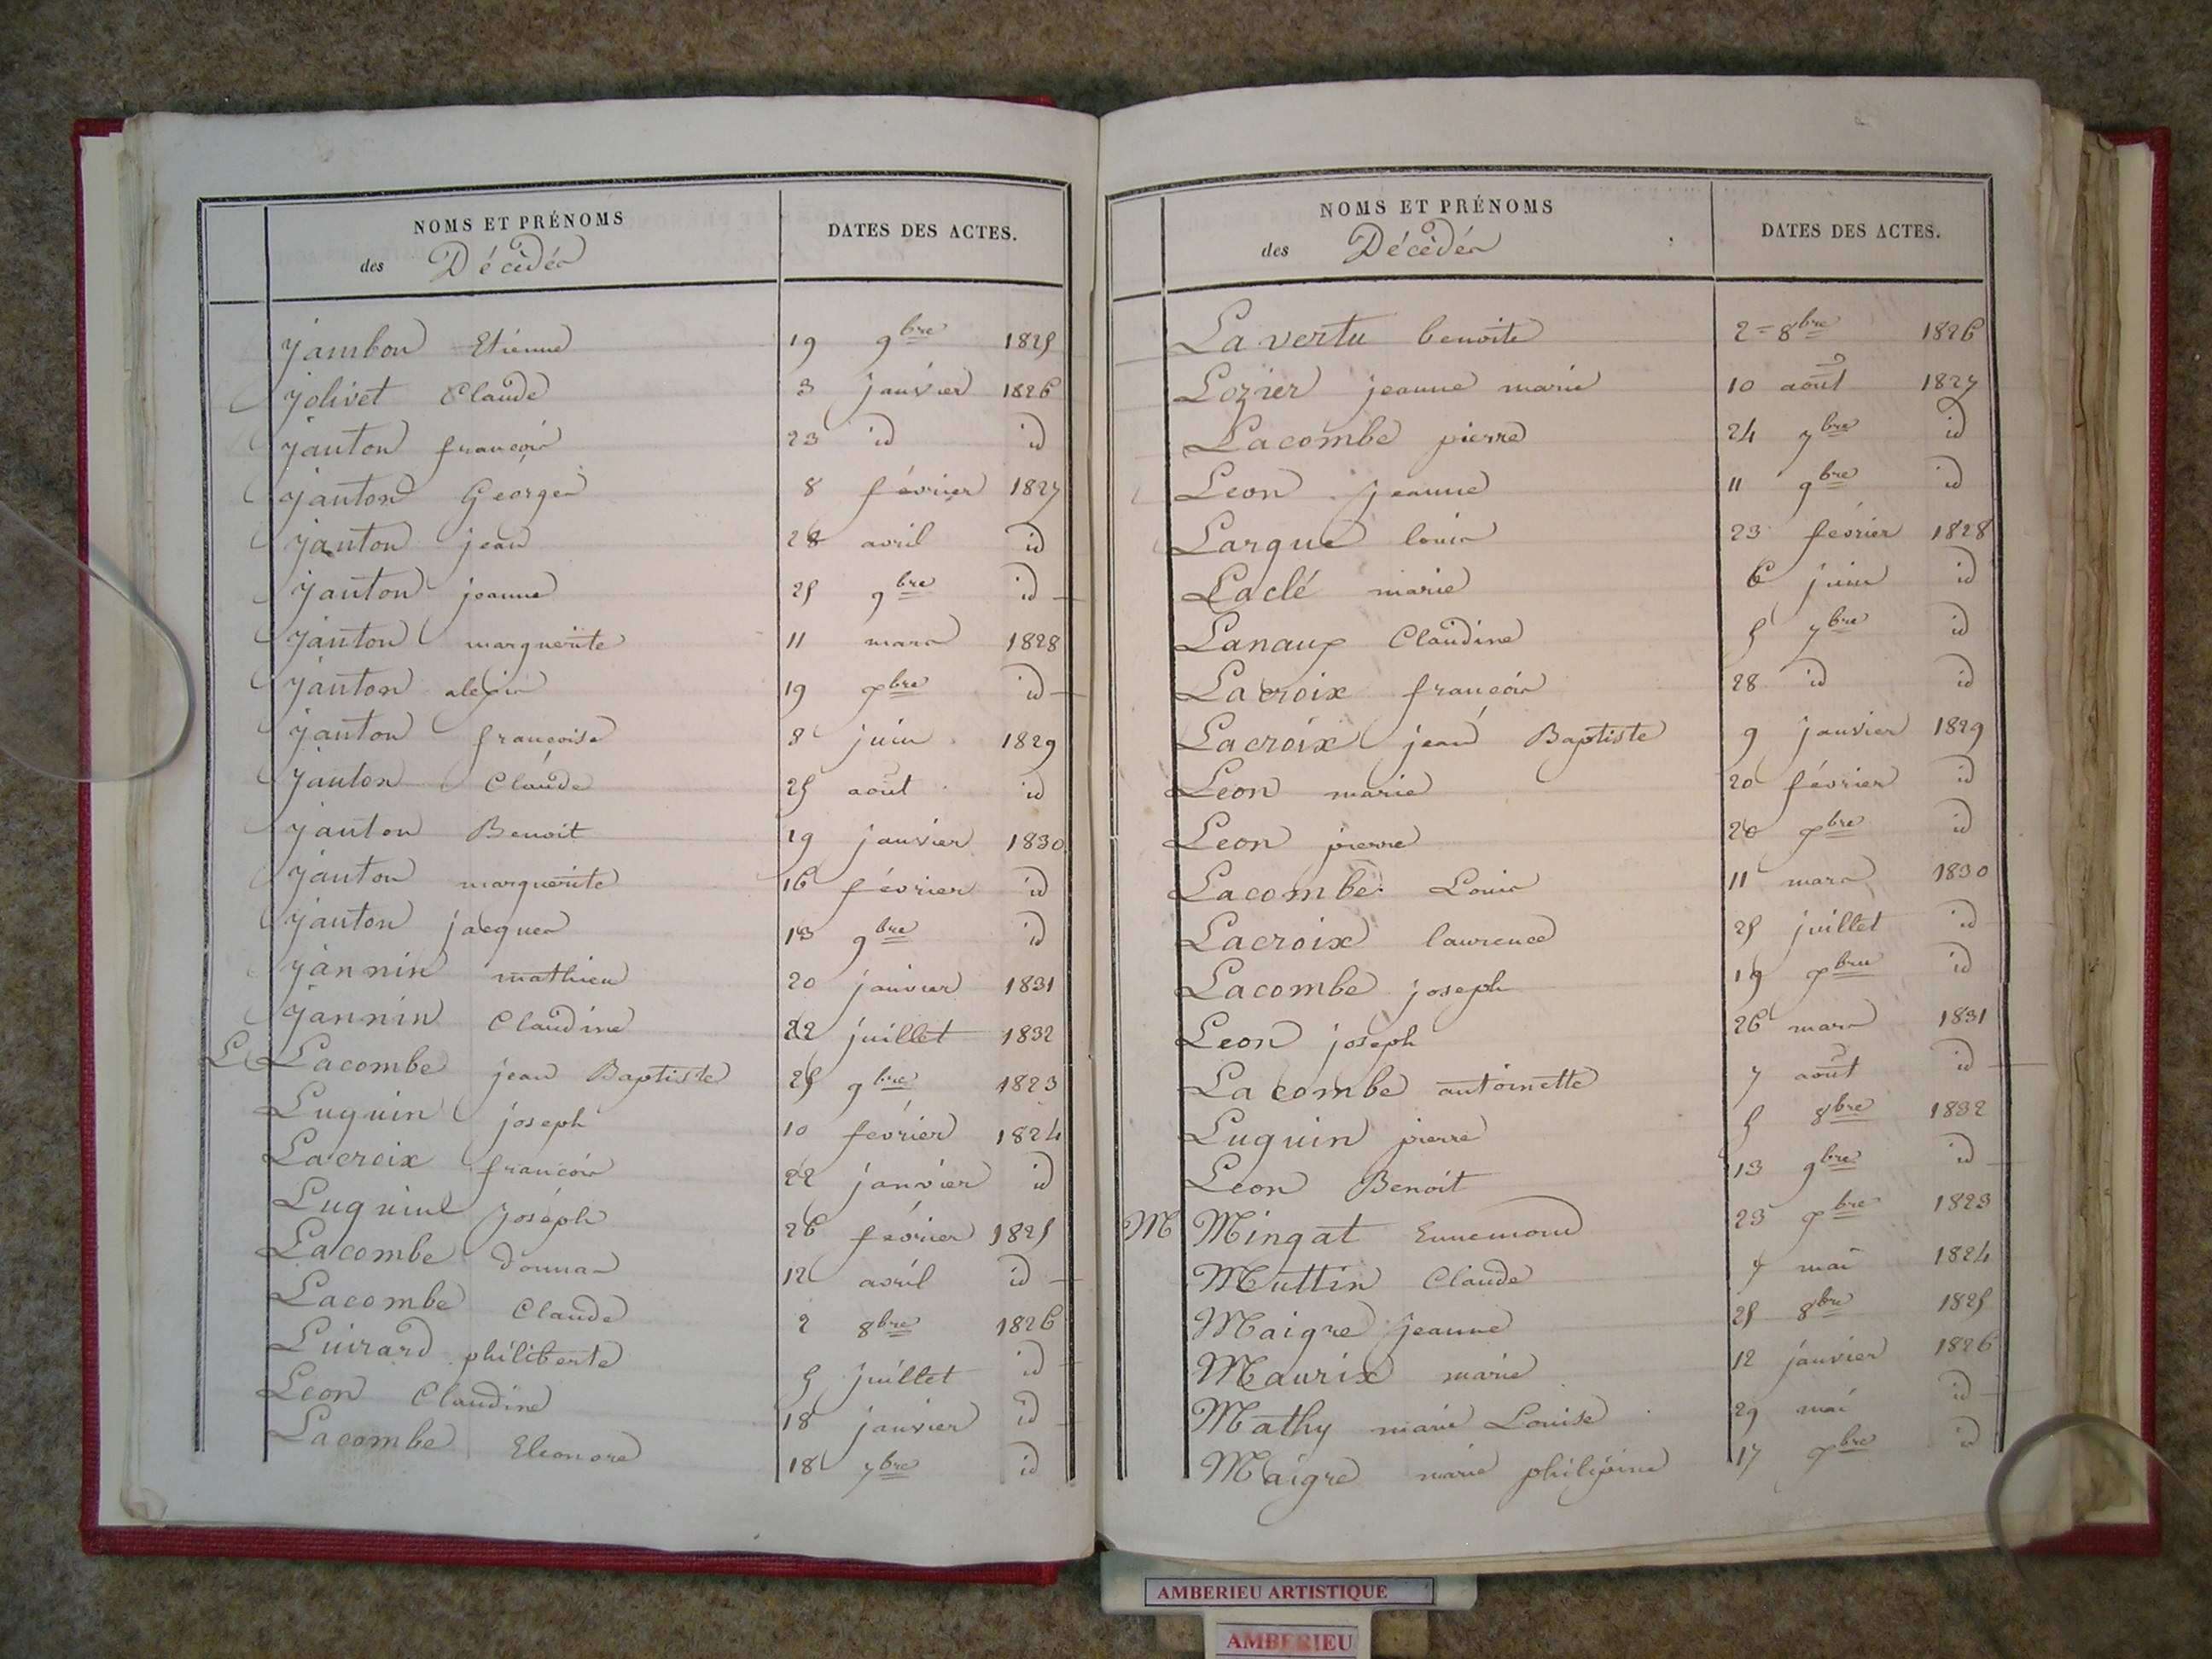 NOMS ET PRÉNOMS
des Décédés
DATES DES ACTES.
Jambon Etienne 19 9bre 1825
Jolivet Claude 3 janvier 1826
Janton françois 23 id id
Janton George 8 février 1827
Janton jean 28 avril id
Janton jeanne 25 9bre id
Janton marguerite 11 mars 1828
Janton alexis 19 xbre id
Janton françoise 8 juin 1829
Janton Claude 25 août id
Janton Benoit 19 janvier 1830
Janton marguerite 16 février id
Janton jacques 13 9bre id
Jannin mathieu 20 janvier 1831
Jannin Claudine 22 juillet 1832
L Lacombe jean Baptiste 25 9bre 1823
Luguin joseph 10 février 1824
Lacroix françois 22 janvier id
Luguin Joseph 26 février 1825
Lacombe 12 avril id
Lacombe Claude 2 8bre 1826
Luirard philiberte 5 juillet id
Leon Claudine 18 janvier id
Lacombe Eleonore 18 7bre id
NOMS ET PRÉNOMS
des Décédés
DATES DES ACTES.
La vertu benoite 2 = 8bre 1826
Lozier jeanne marie 10 août 1827
Lacombe pierre 24 7bre id
Leon jeanne 11 9bre id
Largue louis 23 février 1828
Laclé marie 6 juin id
Lanaux Claudine 5 7bre id
Lacroix françois 28 id id
Lacroix jean Baptiste 9 janvier 1829
Leon marie 20 février id
Leon pierre 20 xbre id
Lacombe Louis 11 mars 1830
Lacroix laurence 25 juillet id
Lacombe joseph 19 xbre id
Leon joseph 26 mars 1831
La combe antoinette 7 août id
Luguin pierre 5 8bre 1832
Leon Benoit 13 9bre id
M Mingat Ennemond 23 xbre 1823
Muttin Claude 7 mai 1824
Maigre jeanne 25 8bre 1825
Maurix marie 12 janvier 1826
Mathy marie Louise 29 mai id
Maigre marie philipine 17 xbre id
AMBERIEU ARTISTIQUE
AMBERIEU